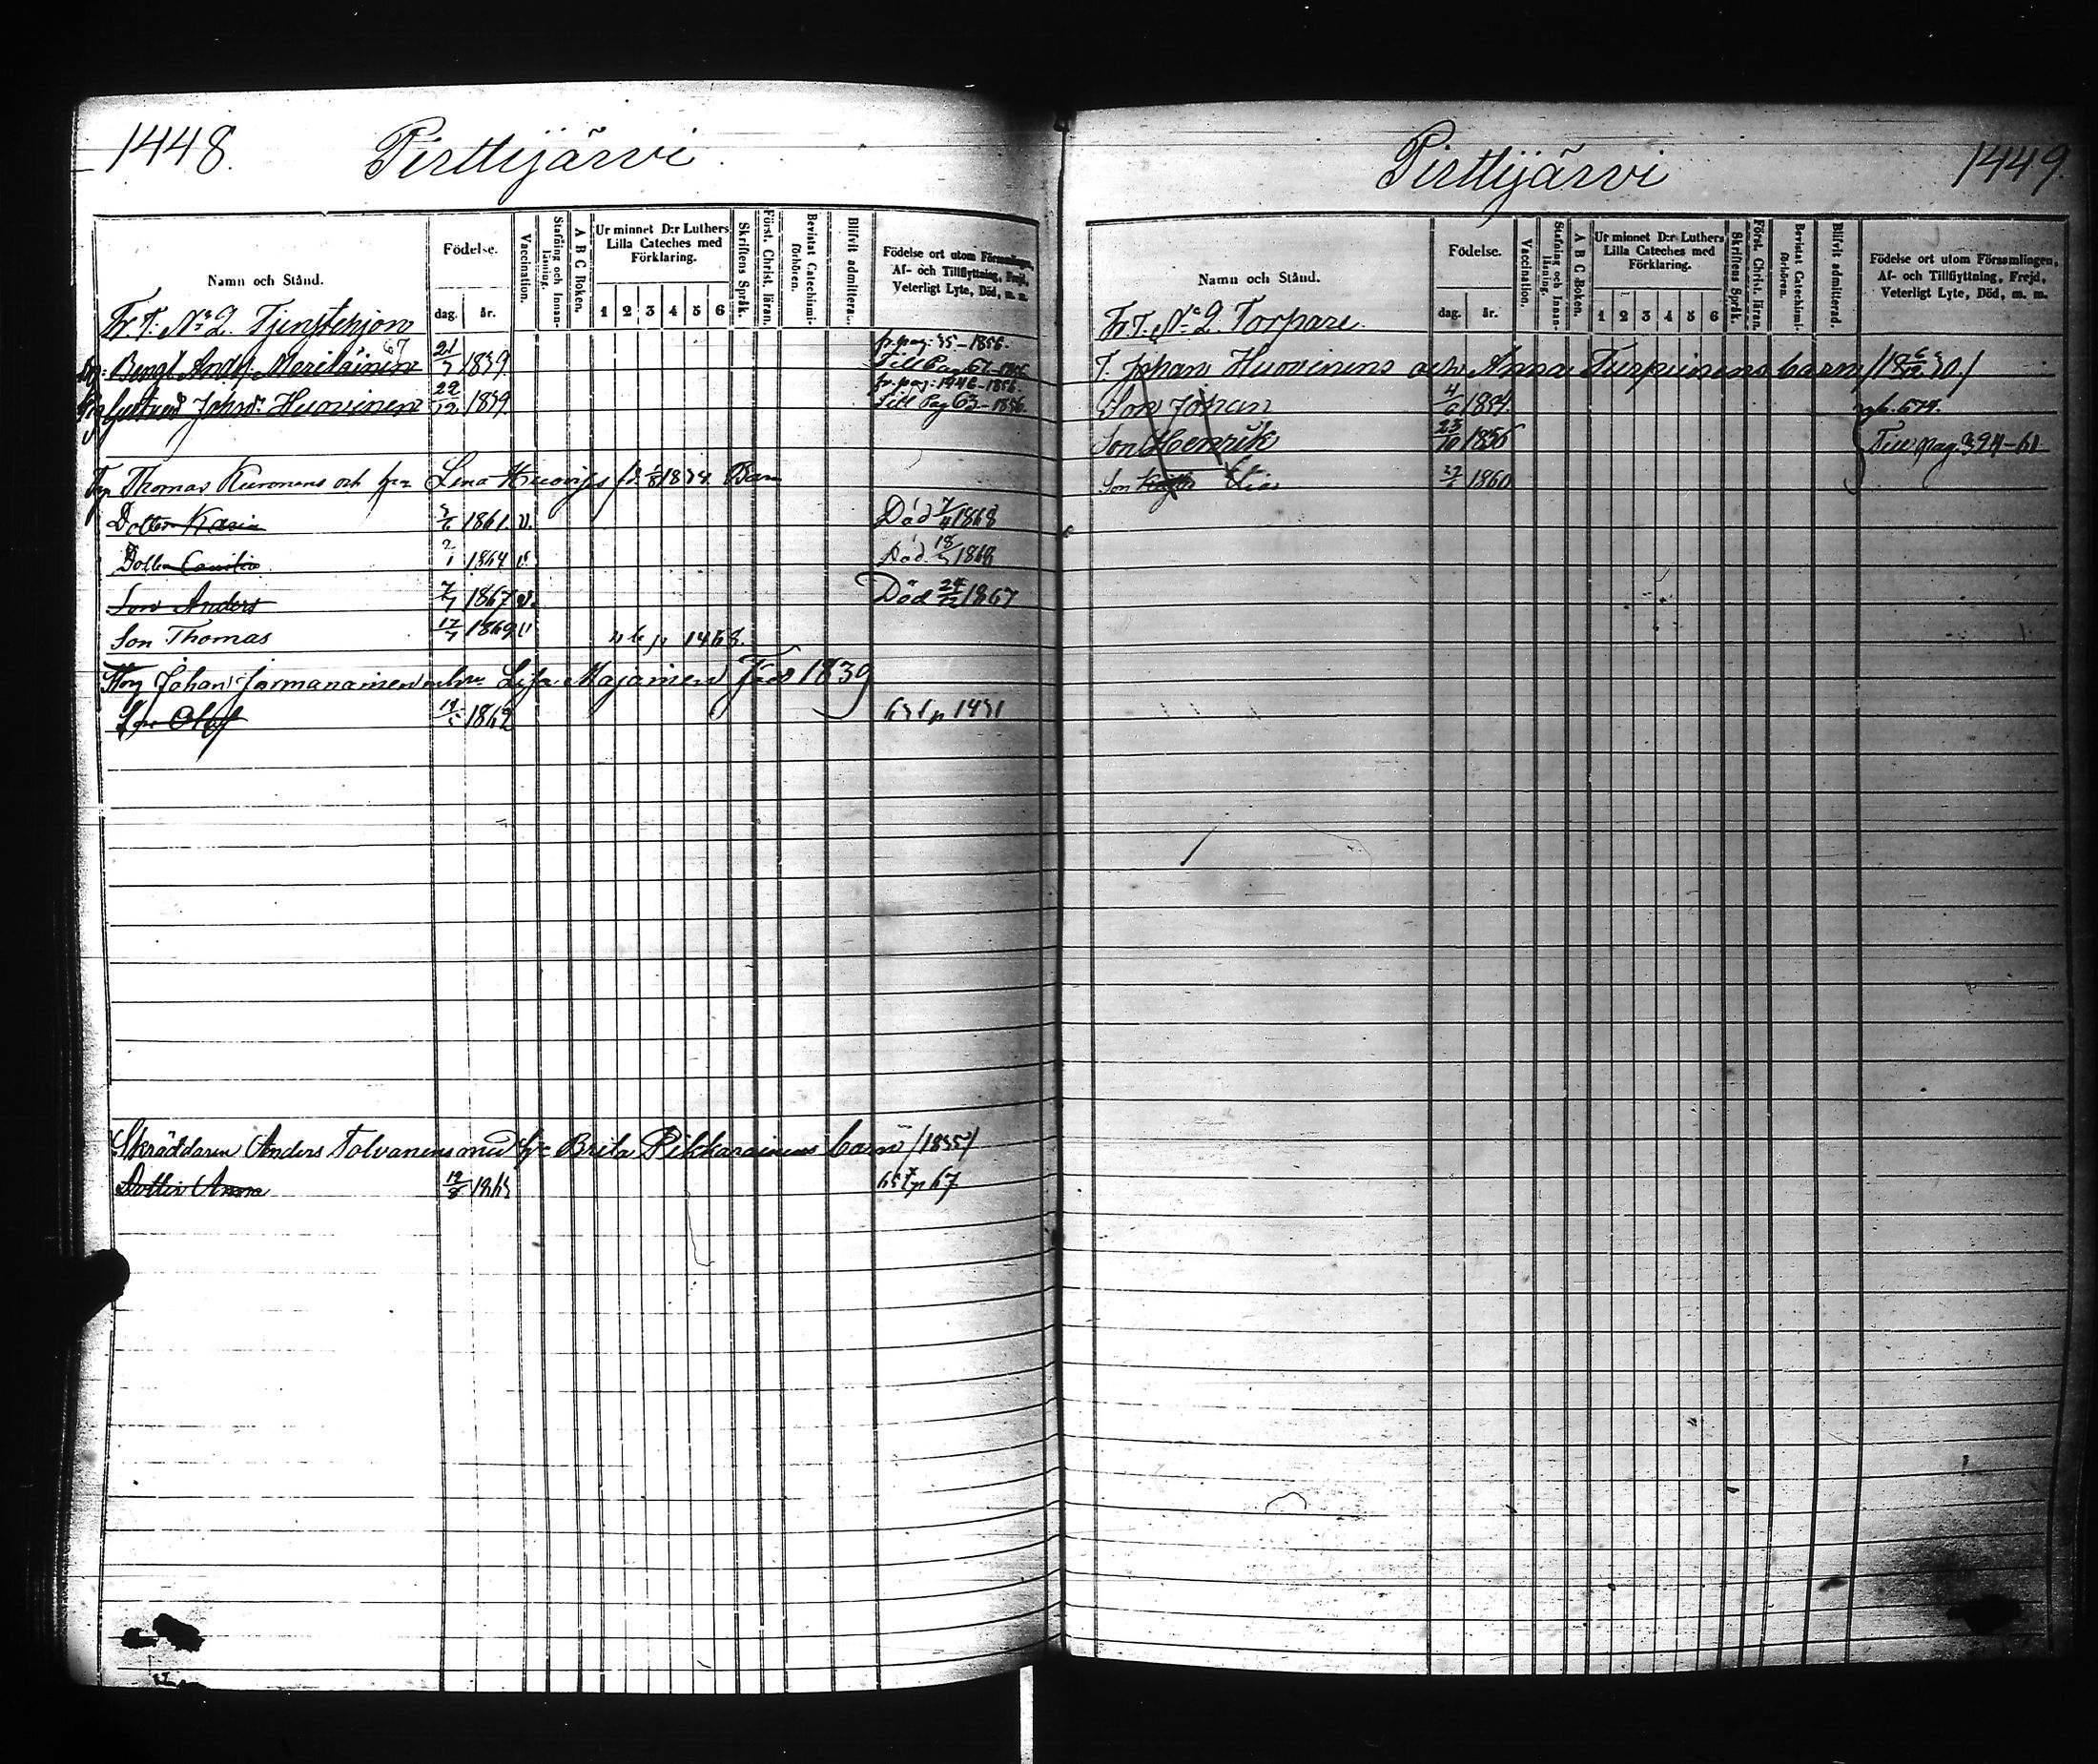 1448. Pirttijärvi.
Namn och Stånd.
Födelse.
dag. år.
Vaccination.
Stafning och Innanläsning.
A B C Boken.
Ur minnet D:r Luthers Lilla Cateches med Förklaring.
1 2 3 4 5 6
Skriftens Språk.
Först. Christ. läran.
Bevistat Catechismiförhören.
Blifvit admitterad.
Födelse ort utom Församlingen,
Af- och Tillflyttning, Frejd,
Veterligt Lyte, Död, m. m.
Fr T. No 2. Tjenstehjon
fr. pag: 35-1856.
Bengt Andr: Meriläinen 21/7 1839. Till Pag 67-1856
fr. pag: 1946-1856.
Johsdr Huovinen 22/12 1839. Till Pag 63-1856.
Thomas Kuronens och hu Lena Huovinens 1834. Barn
Dotter Karin 1861. v. Död 7/4 1868
Dotter 2/1 1864 v. Död 18/ 1868
Son Anders 7/7 1867 v. Död 24/12 1867
Son Thomas 17/7 1869 v. p 1468.
Johan Jormanainen hu Lisa Majainen Född 1839
Son Olof 1862 p 1431
Skräddaren Anders Tolvanens med hu Brita Pikkarainens barn /1835/
Dotter Anna 19/8 1865 p 67
Pirttijärvi 1449.
Namn och Stånd.
Födelse.
dag. år.
Vaccination.
Stafning och Innanläsning.
A B C Boken.
Ur minnet D:r Luthers Lilla Cateches med Förklaring.
1 2 3 4 5 6
Skriftens Språk.
Först. Christ. läran.
Bevistat Catechismiförhören.
Blifvit admitterad.
Födelse ort utom Församlingen,
Af- och Tillflyttning, Frejd,
Veterligt Lyte, Död, m. m.
Fr T. No 2. Torpare.
T. Johan Huovinens och Anna Turpeinens barn
Son Johan 4/6 1854.
Son Henrik 23/10 1856 Till pag. 394-61
Son Elias 1860